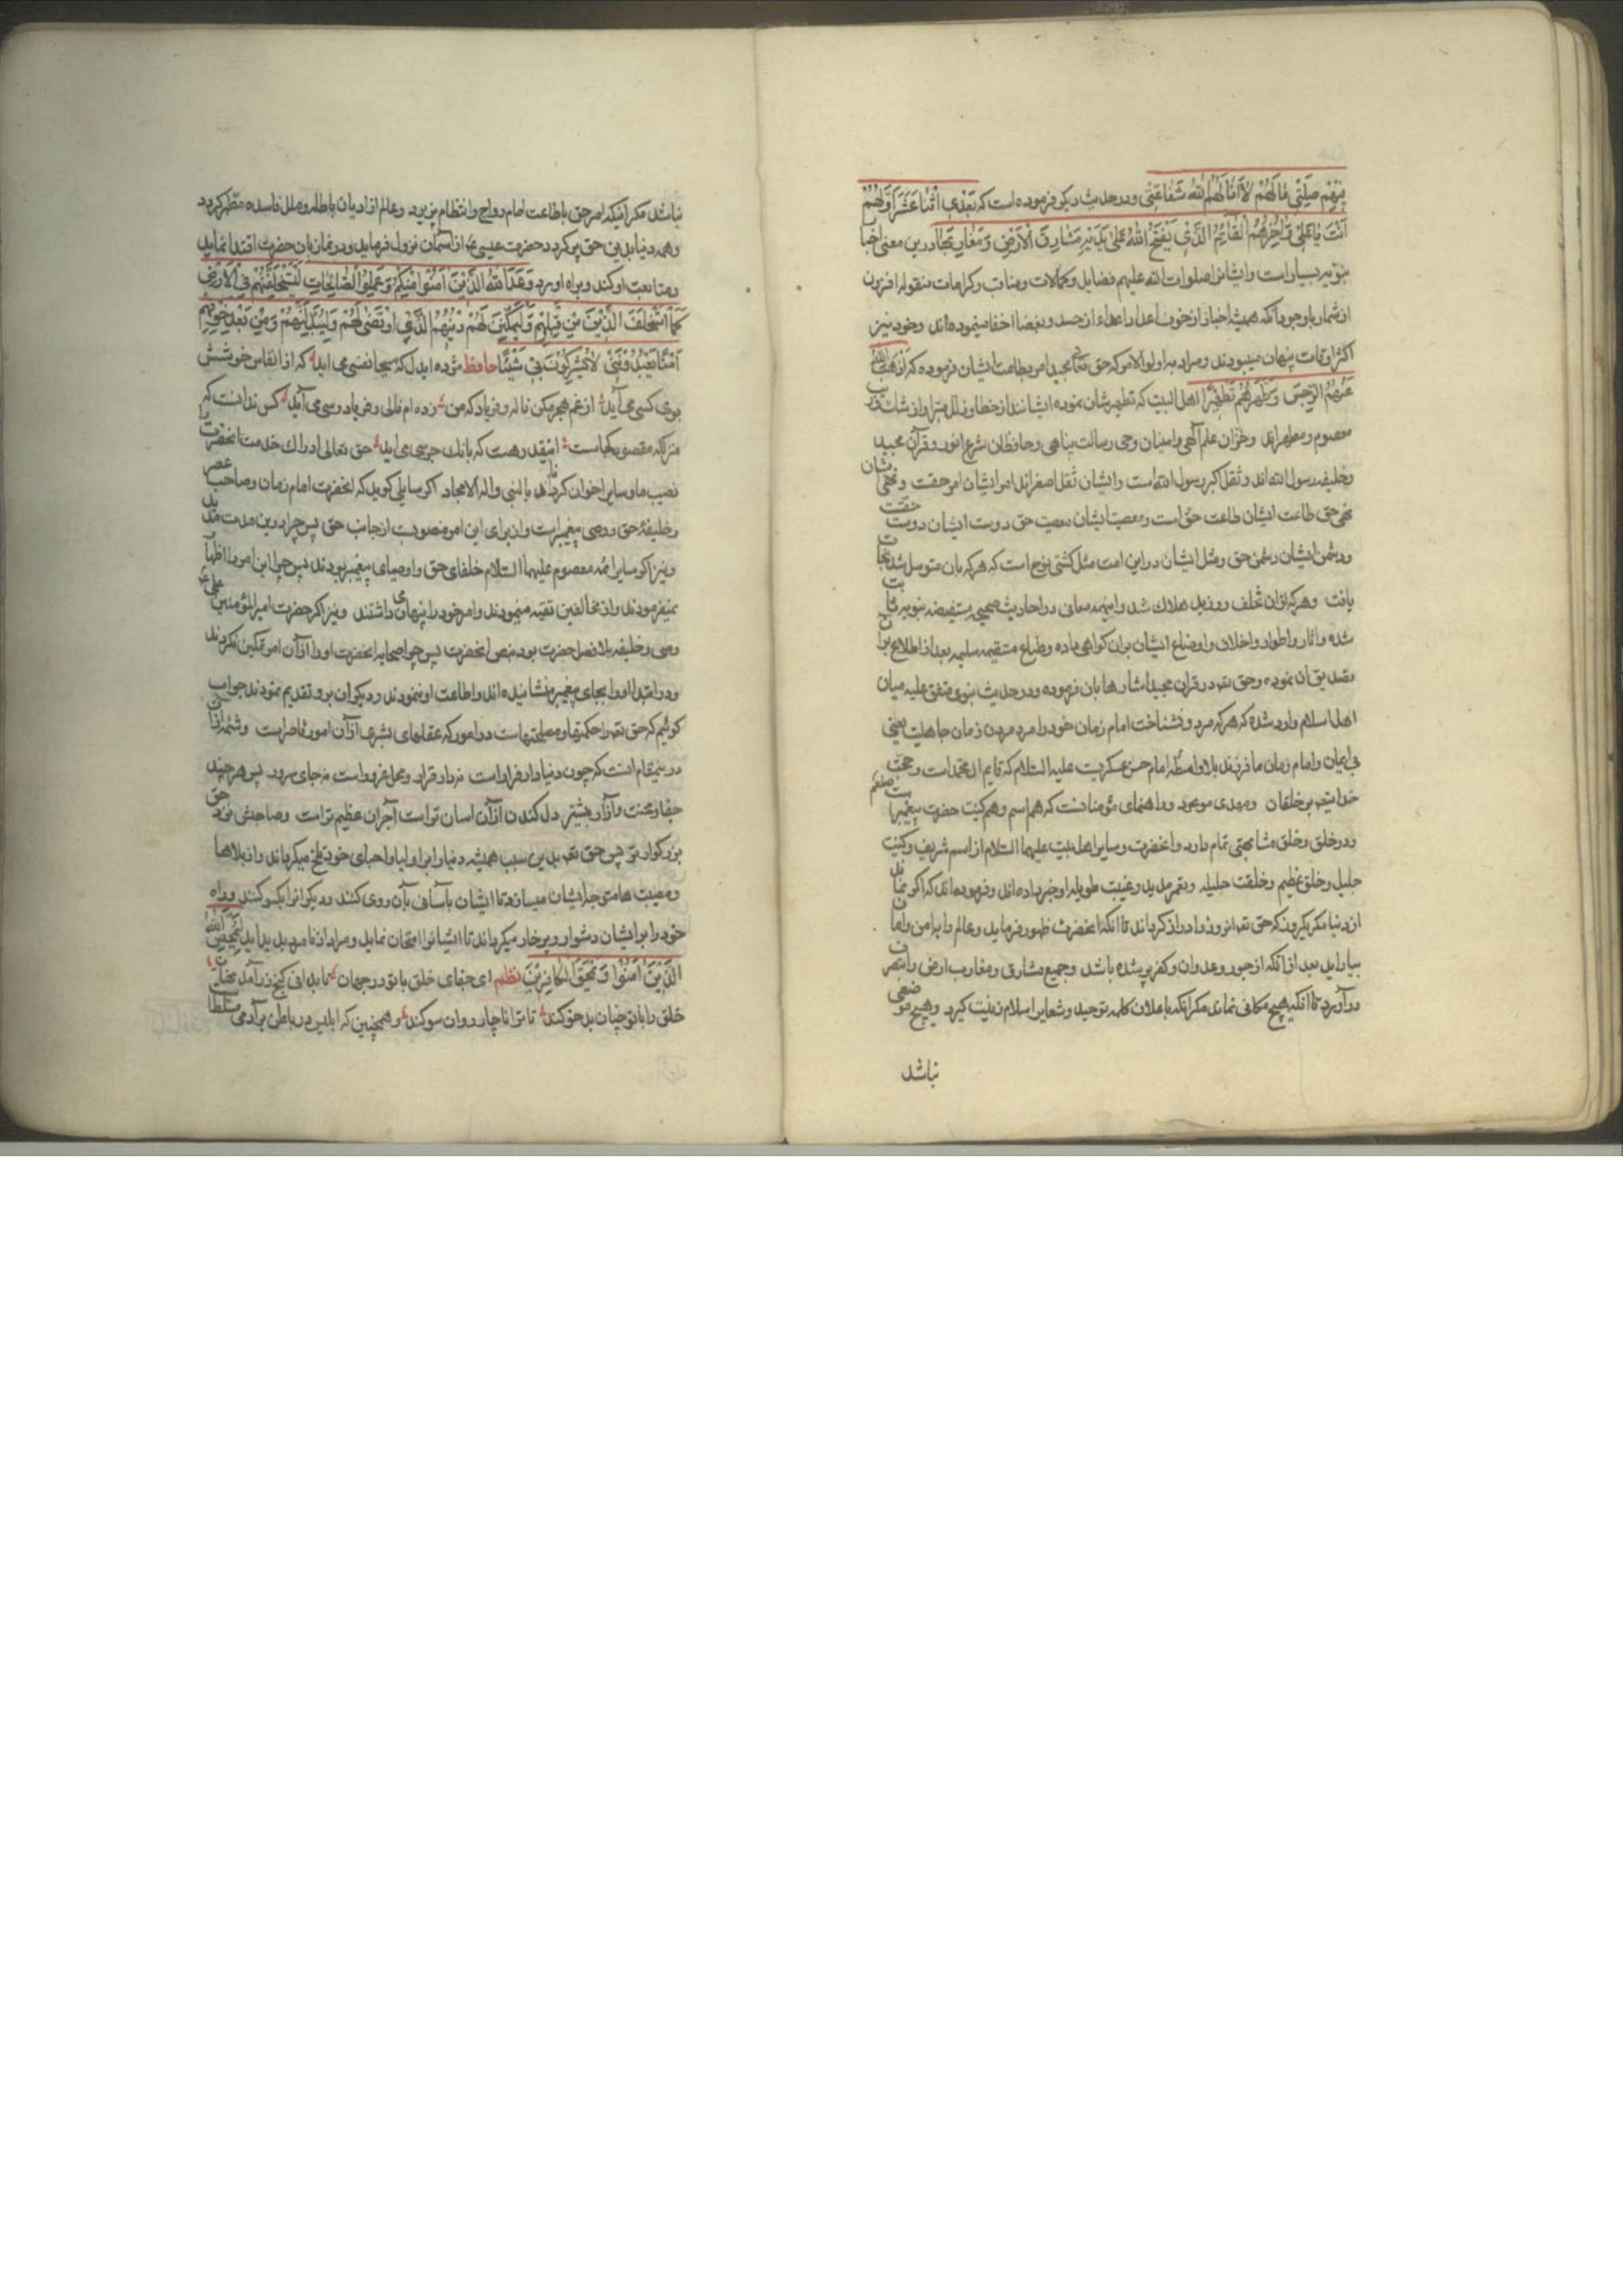 مِنْهُمْ صِلَتِي فَمَا لَهُمْ لَا أَنَالَهُمُ اللهُ شَفَاعَتِي ودر حدیث دیکر فرموده است که بَعْدِي اثْنَا عَشَرَ أَوَّلُهُمْ
أَنْتَ يَا عَلِيُّ وَآخِرُهُمُ الْقَائِمُ الَّذِي يَفْتَحُ اللهُ عَلَى يَدَيْهِ مَشَارِقَ الْأَرْضِ وَمَغَارِبَهَا ودرین معنی اخبا
نبویه بسیار است وایشانرا صلوات الله علیهم فضایل وکمالات ومناقب وکرامات منقوله افزون
از شمار باوجود آنکه همیشه اخیار از خوف اعدا واعداء از حسد وبغضا اخفا مینموده اند وخود نیز
اکثر اوقات پنهان میبودند ومراد به اولوا الامر که حق تعالی مجید امر بطاعت ایشان فرموده که أَذْهَبَ اللهُ
عَنْهُمُ الرِّجْسَ وَطَهَّرَهُمْ تَطْهِيرًا اهل البیت که تطهیر شان نموده ایشانند از خطا وزلل مبرا واز شک وریب
معصوم ومطهراند وخزان علم الهی وامینان وحی رسالت پناهی وحافظان شرع انور وقرآن مجید
وخلیفه رسول الله اند وثقل اکبر رسول الله است وایشان ثقل اصغراند امر ایشان امر حقست ونهی شان
نهی حق طاعت ایشان طاعت حق است ومعصیت ایشان معصیت حق دوست ایشان دوست حقست
ودشمن ایشان دشمن حق ومثل ایشان در این امت مثل کشتی نوح است که هر که بان متوسل شد نجات
یافت وهر که از ان تخلف ورزید هلاک شد واینهمه معانی در احادیث صحیحه مستفیضه نبویه ثابت
شده واثار واطوار واخلاق واوضاع ایشان بران کواهی داده وطباع مستقیمه سلیمه بعد از اطلاع بران
تصدیق ان نموده وحق تعه در قران مجید اشارها بان فرموده ودر حدیث نبوی متفق علیه میان
اهل اسلام وارد شده که هر که مرد ونشناخت امام زمان خود را مرد مردن زمان جاهلیت یعنی
بی ایمان وامام زمان ما فرزند بلا واسطه امام حسن عسکریست علیه السلام که قایم ال محمد است وحجت
خدایتعه بر خلقان ومهدی موعود وراهنمای مؤمنانست که هم اسم وهم کنیت حضرت پیغمبر است صلعم
ودر خلق وخلق مشابهتی تمام دارد وانحضرت وسایر اهل بیت علیهما السلام از اسم شریف وکنیت
جلیل وخلق عظیم وخلقت جلیله وعمر مدید وغیبت طویله او خبر داده اند وفرموده اند که اکر نماند
از دنیا مکر یکروز که حق تعه انروز را دراز کرداند تا انکه انحضرت ظهور فرماید وعالم را بامن وامان
بیاراید بعد از انکه از جور وعدوان وکفر پر شده باشد وجمیع مشارق ومغارب ارض را بتصرف
در آورد تا انکه هیچ مکانی نماند مکر انکه باعلان کلمه توحید وشعایر اسلام زینت کیرد وهیچ موضعی
نباشد
نباشد مکر انیکه امر حق باطاعت امام رواج وانتظام پذیرد وعالم از ادیان باطله وملل فاسده مطهر کردد
وهمه دنیا بدین حق پر کردد حضرت عیسی ع از آسمان نزول فرماید ودر نماز بان حضرت اقتدا نماید
ومتابعت او کند وبراه او رود وَعَدَ اللهُ الَّذِينَ آمَنُوا مِنْكُمْ وَعَمِلُوا الصَّالِحَاتِ لَيَسْتَخْلِفَنَّهُمْ فِي الْأَرْضِ
كَمَا اسْتَخْلَفَ الَّذِينَ مِنْ قَبْلِهِمْ وَلَيُمَكِّنَنَّ لَهُمْ دِينَهُمُ الَّذِي ارْتَضَى لَهُمْ وَلَيُبَدِّلَنَّهُمْ وَمِنْ بَعْدِ خَوْفِهِمْ
أَمْنًا يَعْبُدُونَنِي لَا يُشْرِكُونَ بِي شَيْئًا حافظ مژده ایدل که مسیحا نفسی می اید که از انفاس خوشش
بوی کسی می آید از غم هجر مکن ناله وفریاد که من زده ام فالی وفریاد رسی می آید کس ندانست که
منزلکه مقصود کجاست اینقدر هست که بانک جرسی می اید حق تعالی ادراک خدمت انحضرت را
نصیب ما وسایر اخوان کرداناد بالنبی واله الامجاد اکر سایلی کوید که انحضرت امام زمان وصاحب عصر
وخلیفهٔ حق ووصی پیغمبر است واز برای این امر منصوبست از جانب حق پس چرا درین مدت مدید
ونیز اکر سایر ائمه معصوم علیهما السلام خلفای حق واوصیای پیغمبر بودند پس چرا این امر را اظهار
نمیفرمودند واز مخالفین تقیه مینمودند وامر خود را پنهان می داشتند ونیز اکر حضرت امیر المؤمنین علی ع
وصی وخلیفه بلا فصل حضرت بود بنص انحضرت پس چرا صحابه انحضرت او را از ان امر تمکین نکردند
ودر ابتدا او را بجای پیغمبر ننشانیده اند واطاعت او ننمودند ودیکران برو تقدیم نمودند جواب
کوئیم که حق تعه را حکمتها ومصلحتهاست در امور که عقلهای بشری از آن امور قاصر است وشمه از ان
در ینمقام انست که چون دنیا دار فرار است نه دار قرار ومحل غرور است نه جای سرور پس هر چند
جفا ومحنت وآزار بیشتر دل کندن از آن اسان تر است آجر ان عظیم تر است وصاحبش نزد حق
بزرکوارتر پس حق تعه بدین سبب همیشه دنیا را بر اولیا واحبای خود تلخ میکرداند واز بلاها
ومصیبت ها متوجه ایشان میسازد تا ایشان بآسانی بآن روی کنند ودیکرانرا یکسو کنند وراه
خود را بر ایشان دشوار وپر خار میکرداند تا ایشانرا امتحان نماید ومراد از نامرد بدید اید لِيُمَحِّصَ اللهُ
الَّذِينَ آمَنُوا وَيَمْحَقَ الْكَافِرِينَ نظم ای جفای خلق با تو در جهان تا بدانی کنج زر آمد نهان
خلق را با تو چنان بدخو کند تا ترا ناچار رو ان سو کند وهمچنین که ابلیس در باطن بر آدمی مسلط